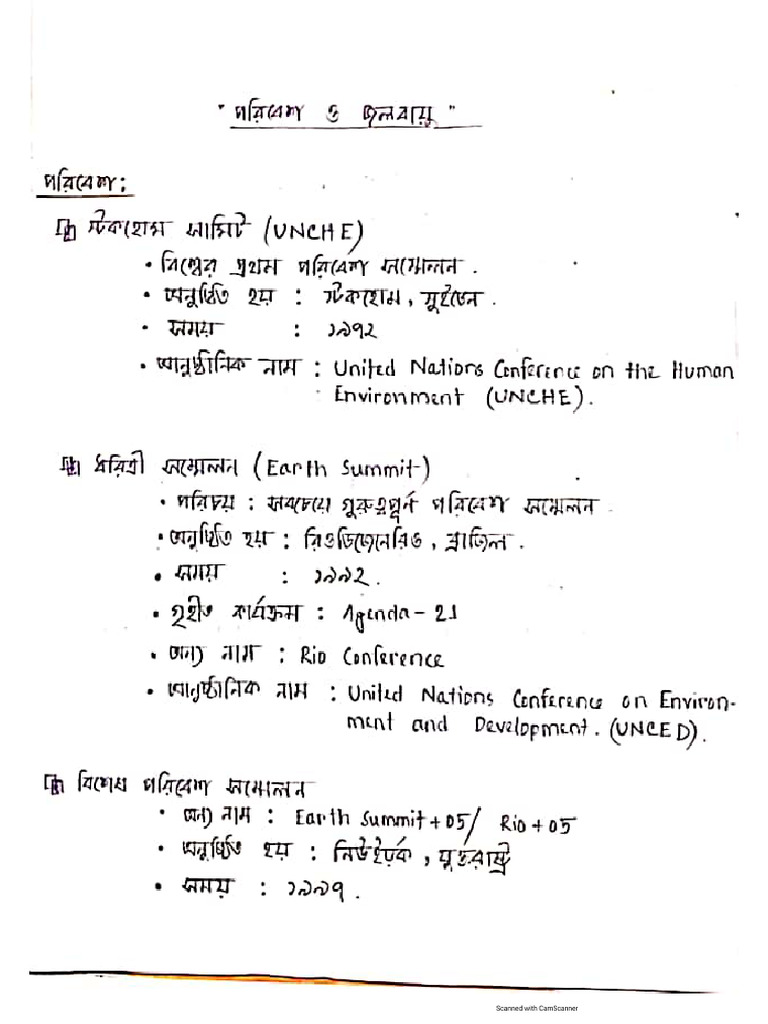 "পরিবেশ ও জলবায়ু"
পরিবেশ:
স্টকহোম সামিট (UNCHE)
• বিশ্বের প্রথম পরিবেশ সম্মেলন.
• অনুষ্ঠিত হয় : স্টকহোম, সুইডেন.
• সময় : ১৯৭২
• আনুষ্ঠানিক নাম : United Nations Conference on the Human
Environment (UNCHE).
ধরিত্রী সম্মেলন (Earth Summit)
• পরিচয় : সবচেয়ে গুরুত্বপূর্ণ পরিবেশ সম্মেলন
• অনুষ্ঠিত হয় : রিওডিজেনেরিও, ব্রাজিল.
• সময় : ১৯৯২.
• গৃহীত কার্যক্রম : Agenda-21
• অন্য নাম : Rio Conference
• আনুষ্ঠানিক নাম : United Nations Conference on Environ-
ment and Development. (UNCED).
বিশেষ পরিবেশ সম্মেলন
• অন্য নাম : Earth Summit+05/ Rio+05
• অনুষ্ঠিত হয় : নিউইর্য়ক, যুক্তরাস্ট্রে
• সময় : ১৯৯৭.
Scanned with CamScanner